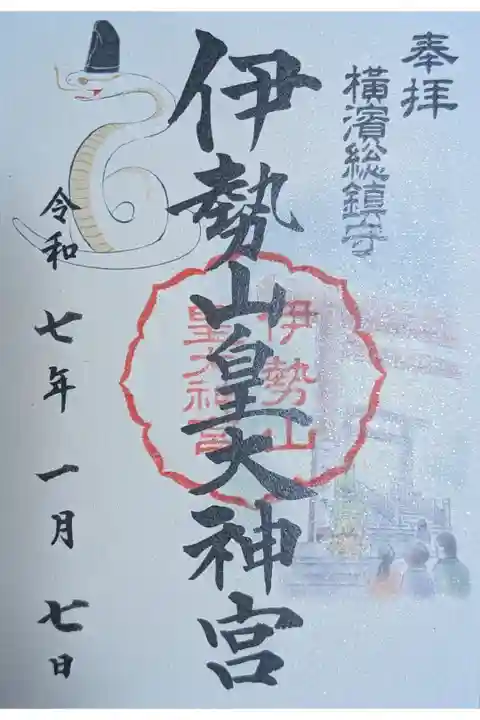 奉拝
横濱総鎮守
伊勢山皇大神宮
伊勢山
皇大神宮
令和七年一月七日